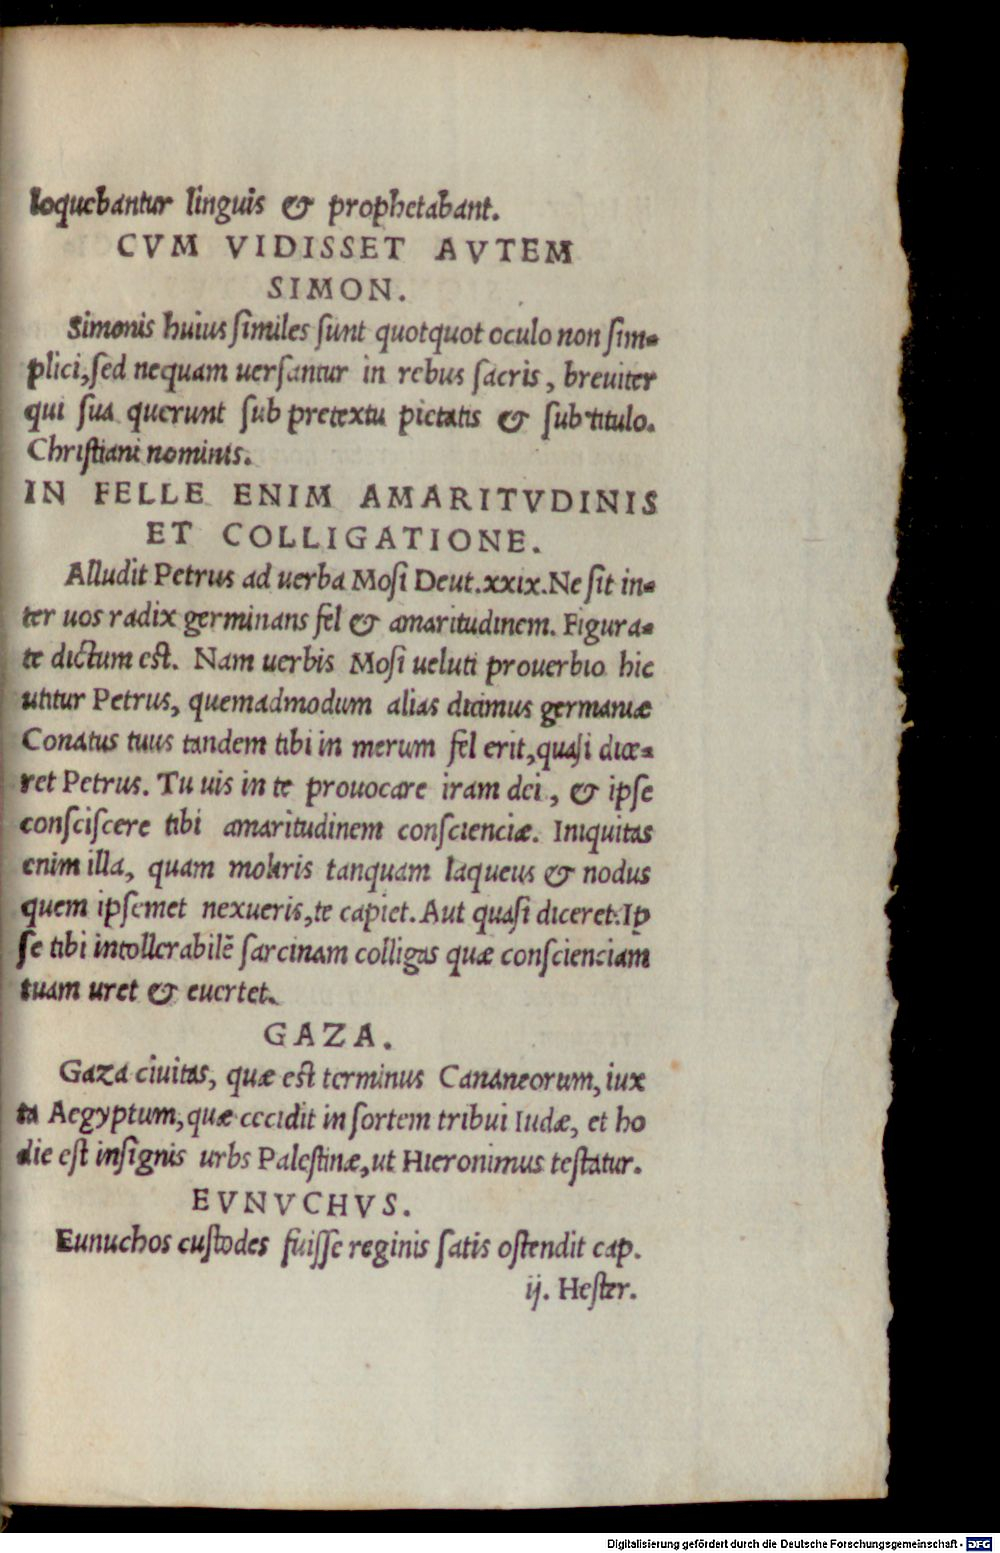 loquebantur linguis & prophetabant.
CVM VIDISSET AVTEM
SIMON.
Simonis huius ſimiles ſunt quotquot oculo non ſim-
plici, ſed nequam uerſantur in rebus ſacris, breuiter
qui ſua querunt ſub pretextu pietatis & ſub titulo.
Chriſtiani nominis.
IN FELLE ENIM AMARITVDINIS
ET COLLIGATIONE.
Alludit Petrus ad uerba Moſi Deut.xxix. Ne ſit in-
ter uos radix germinans fel & amaritudinem. Figura-
te dictum eſt. Nam uerbis Moſi ueluti prouerbio hic
utitur Petrus, quemadmodum alias dicimus germanicæ
Conatus tuus tandem tibi in merum fel erit, quaſi dice-
ret Petrus. Tu uis in te prouocare iram dei, & ipſe
conſciſcere tibi amaritudinem conſcienciæ. Iniquitas
enim illa, quam moliris tanquam laqueus & nodus
quem ipſemet nexueris, te capiet. Aut quaſi diceret. Ip
ſe tibi intollerabilē ſarcinam colligas quæ conſcienciam
tuam uret & euertet.
GAZA.
Gaza ciuitas, quæ eſt terminus Cananeorum, iux
ta Aegyptum, quæ cecidit in ſortem tribui Iudæ, et ho
die eſt inſignis urbs Paleſtinæ, ut Hieronimus teſtatur.
EVNVCHVS.
Eunuchos cuſtodes fuiſſe reginis ſatis oſtendit cap.
ij. Heſter.
Digitalisierung gefördert durch die Deutsche Forschungsgemeinschaft - DFG